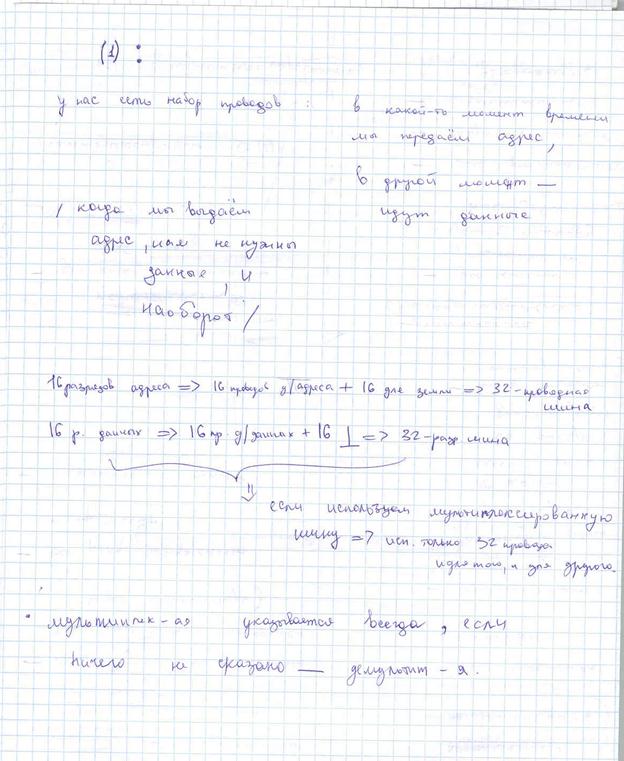 (1) :
у нас есть набор проводов : в какой-то момент времени
мы передаём адрес,
в другой момент —
идут данные
/ когда мы выдаём
адрес, нам не нужны
данные, и
наоборот /
16 разрядов адреса => 16 проводов д/адреса + 16 для земли => 32-проводная
шина
16 р. данных => 16 пр. д/данных + 16 ⊥ => 32-разр шина
⇓
если используем мультиплексированную
шину => исп. только 32 провода
и для того, и для другого.
• мультиплек-ая указывается всегда, если
ничего не сказано — демультип-я.